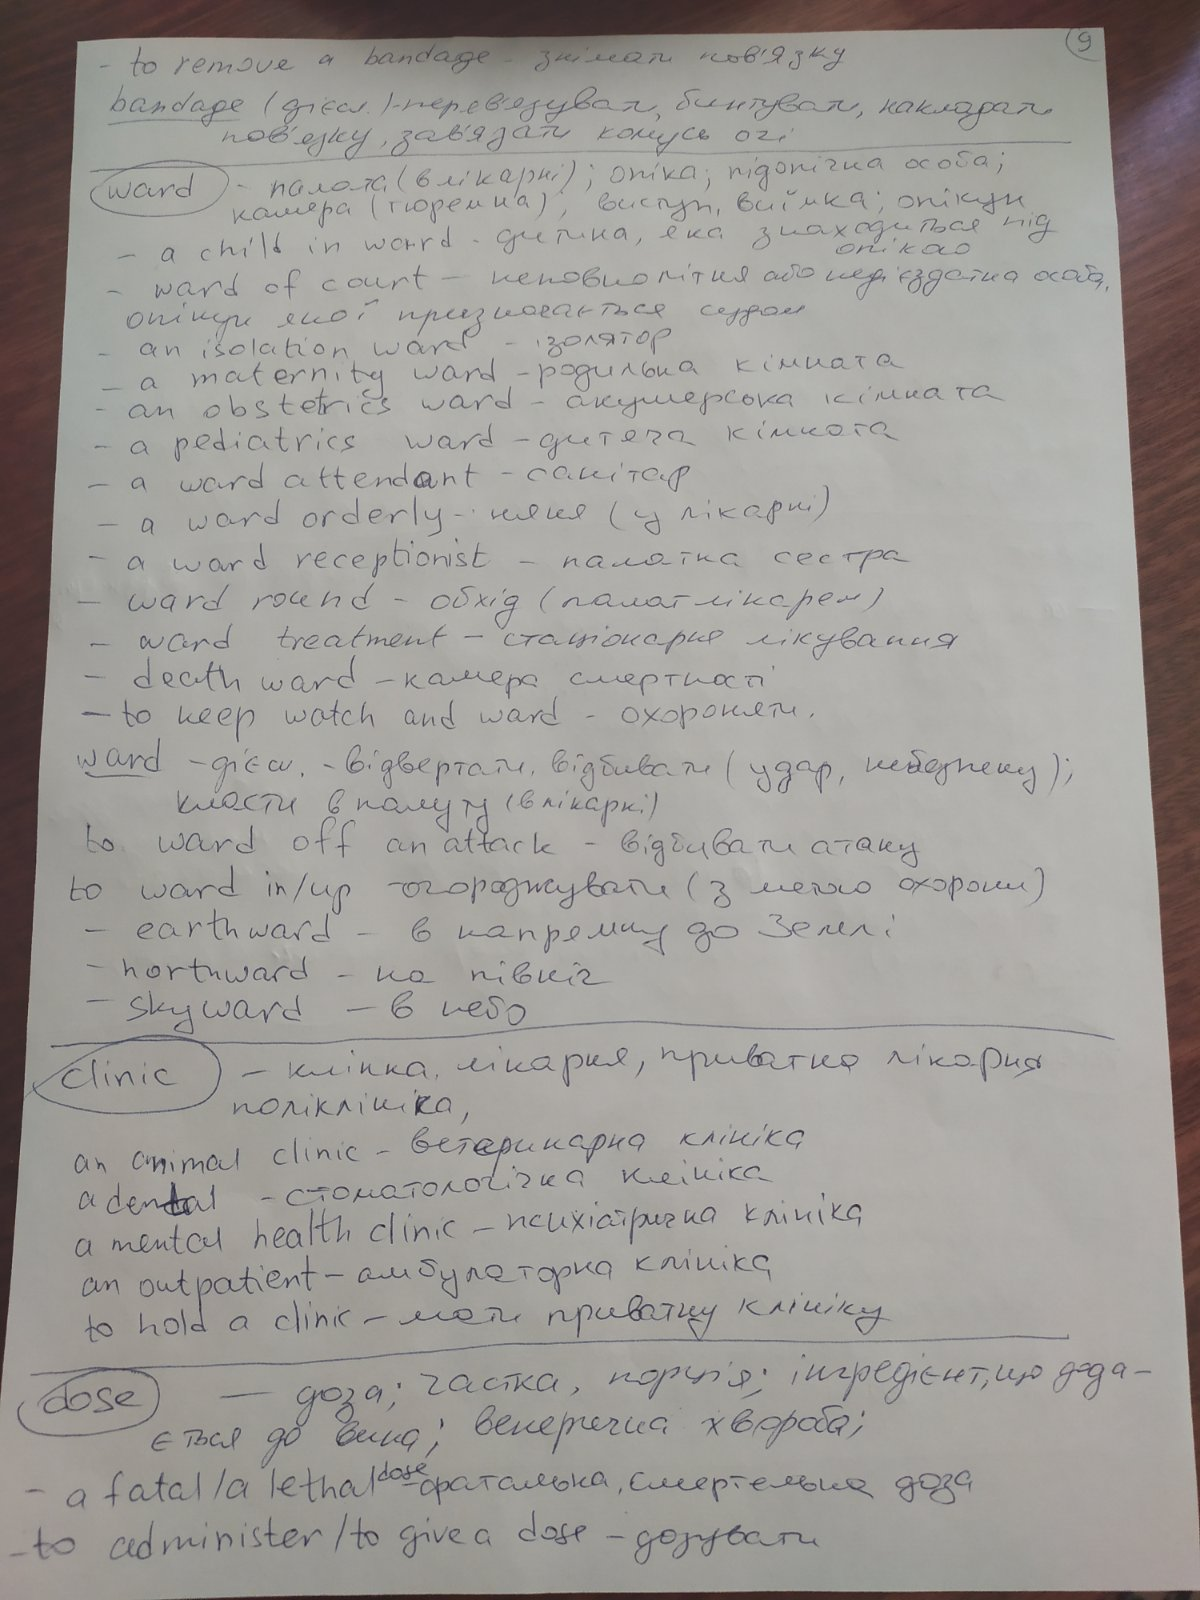 9
- to remove a bandage - знімати пов'язку
bandage (дієсл.) - перев'язувати, бинтувати, накладати
пов'язку, зав'язати комусь очі
ward - палата (в лікарні); опіка; підопічна особа;
камера (тюремна), виступ, виїмка; опікун
- a child in ward - дитина, яка знаходиться під
опікою
- ward of court - неповнолітня або недієздатна особа,
опікун якої призначається судом
- an isolation ward - ізолятор
- a maternity ward - родильна кімната
- an obstetrics ward - акушерська кімната
- a pediatrics ward - дитяча кімната
- a ward attendant - санітар
- a ward orderly - няня (у лікарні)
- a ward receptionist - палатна сестра
- ward round - обхід (палат лікарем)
- ward treatment - стаціонарне лікування
- death ward - камера смертності
- to keep watch and ward - охороняти.
ward - дієсл. - відвертати, відбивати (удар, небезпеку);
класти в палату (в лікарні)
to ward off an attack - відбивати атаку
to ward in/up - огороджувати (з метою охорони)
- earthward - в напрямку до Землі
- northward - на північ
- skyward - в небо
clinic - клініка, лікарня, приватна лікарня
поліклініка,
an animal clinic - ветеринарна клініка
a dental - стоматологічна клініка
a mental health clinic - психіатрична клініка
an outpatient - амбулаторна клініка
to hold a clinic - мати приватну клініку
dose - доза; частка, порція; інгредієнт, що дода-
ється до вина; венерична хвороба;
- a fatal / a lethal dose - фатальна, смертельна доза
- to administer / to give a dose - дозувати